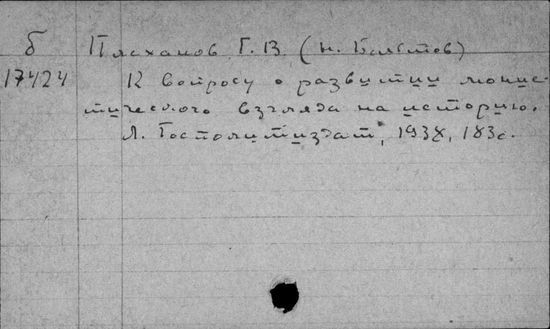 б Плеханов, Г. В. (Н. Бельтов)
17424 К вопросу о развитии монис-
тического взгляда на историю.
Л. Госполитиздат, 1938, 183с.